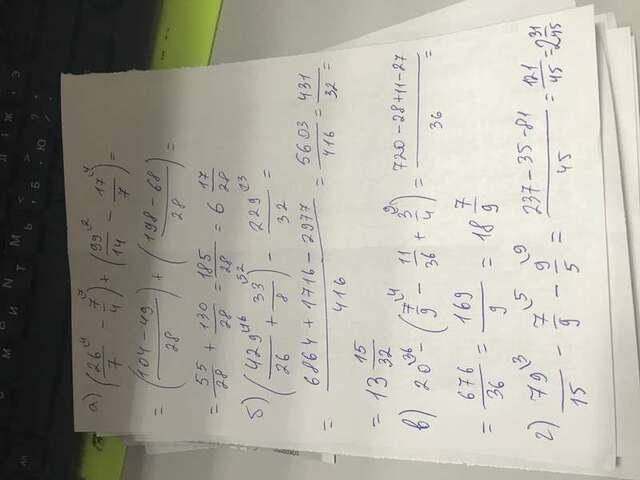 а) (26/7 - 7/4) + (99/14 - 17/7) =
= (104-49)/28 + (198-68)/28 =
= 55/28 + 130/28 = 185/28 = 6 17/28
б) (429/26 + 33/8) - 229/32 =
= (6864+1716-2977)/416 = 5603/416 = 431/32
= 13 15/32
в) 20 - (7/9 - 11/36 + 3/4) = (720-28+11-27)/36 =
= 676/36 = 169/9 = 18 7/9
г) 79/15 - 7/9 - 9/5 = (237-35-81)/45 = 121/45 = 2 31/45